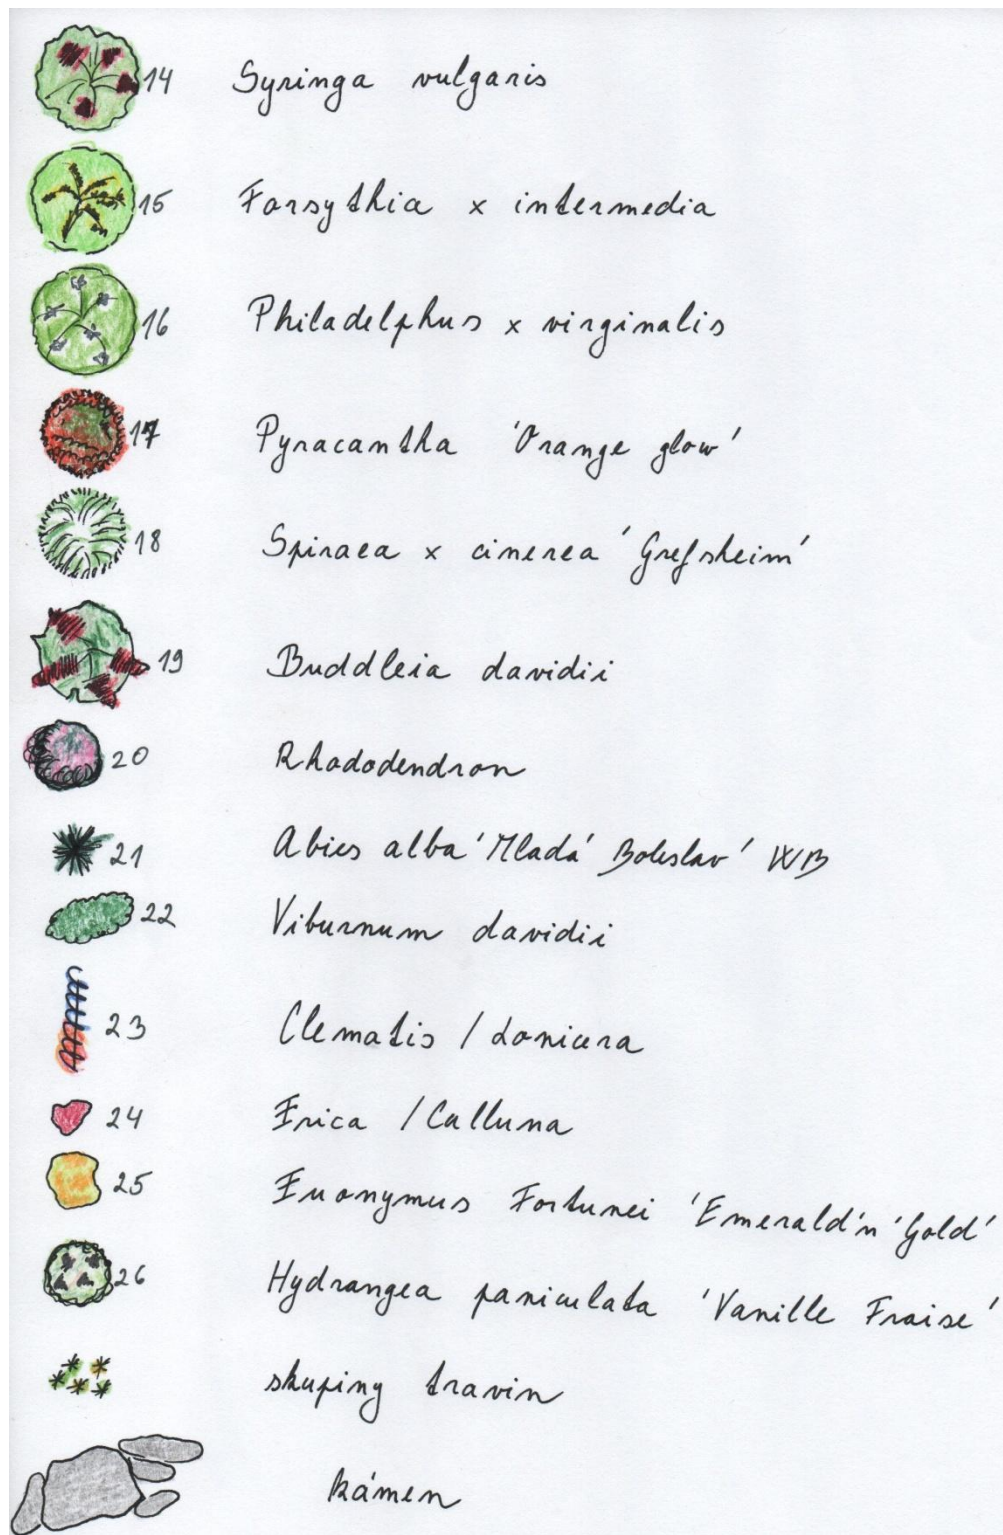 14 Syringa vulgaris
15 Forsythia x intermedia
16 Philadelphus x virginalis
17 Pyracantha 'Orange glow'
18 Spiraea x cinerea 'Grefsheim'
19 Buddleia davidii
20 Rhododendron
21 Abies alba 'Mladá Boleslav' WB
22 Viburnum davidii
23 Clematis / Lonicera
24 Erica / Calluna
25 Euonymus Fortunei 'Emerald'n 'Gold'
26 Hydrangea paniculata 'Vanille Fraise'
skupiny travin
kámen